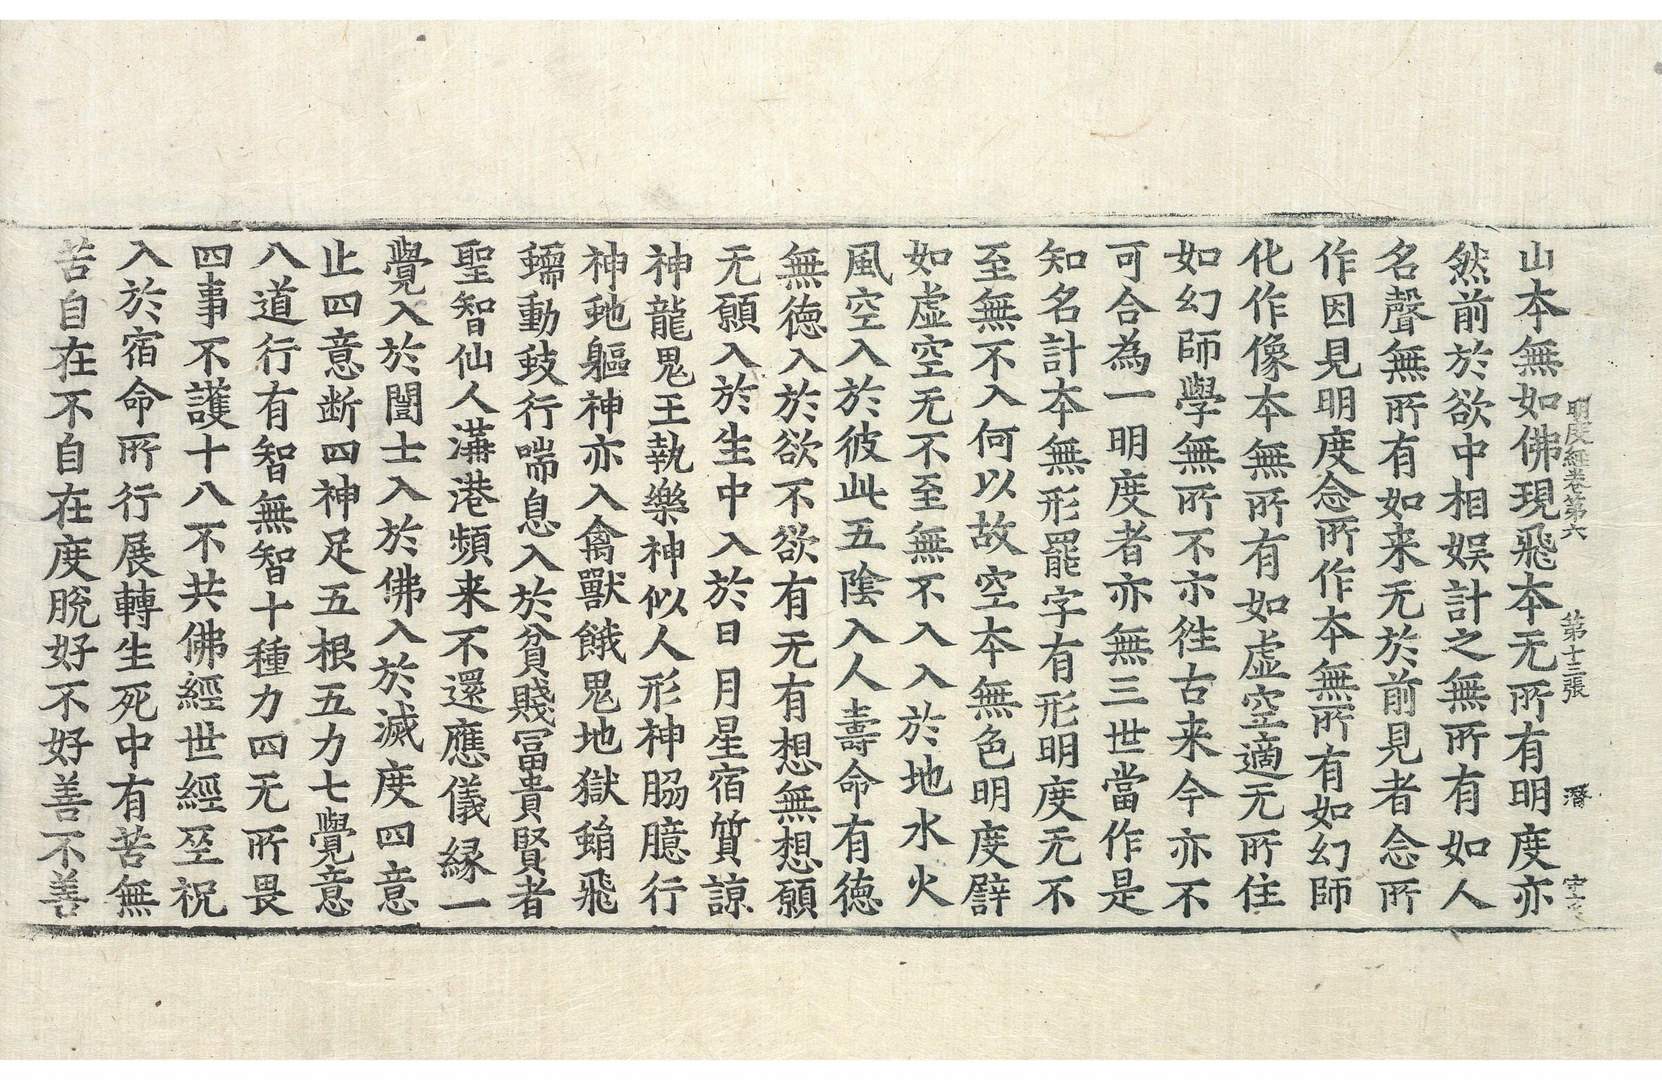 明度經卷第六 第十三張 潛 守文
山本無如佛現飛本无所有明度亦
然前於欲中相娛計之無所有如人
名聲無所有如来无於前見者念所
作因見明度念所作本無所有如幻師
化作像本無所有如虛空適无所住
如幻師學無所不亦徃古来今亦不
可合為一明度者亦無三世當作是
知名計本無形罷字有形明度无不
至無不入何以故空本無色明度譬
如虛空无不至無不入入於地水火
風空入於彼此五陰入人壽命有德
無德入於欲不欲有无有想無想願
无願入於生中入於日月星宿質諒
神龍鬼王執樂神似人形神𦙶臆行
神虵軀神亦入禽獸餓鬼地獄蜎飛
蠕動蚑行喘息入於貧賤冨貴賢者
聖智仙人溝港頻来不還應儀縁一
覺入於闓士入於佛入於滅度四意
止四意断四神足五根五力七覺意
八道行有智無智十種力四无所畏
四事不護十八不共佛經世經坙祝
入於宿命所行展轉生死中有苦無
苦自在不自在度脫好不好善不善